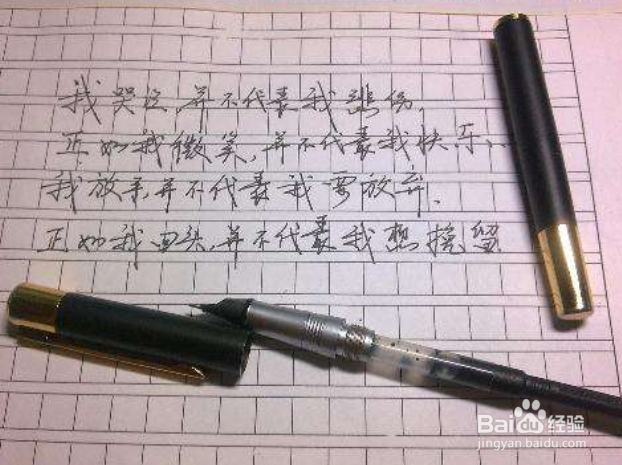 我哭泣,并不代表我悲伤,
正如我微笑,并不代表我快乐、
我放手,并不代表我要放弃.
正如我回头,并不代表我想挽留
Baidu经验
jingyan.baidu.com